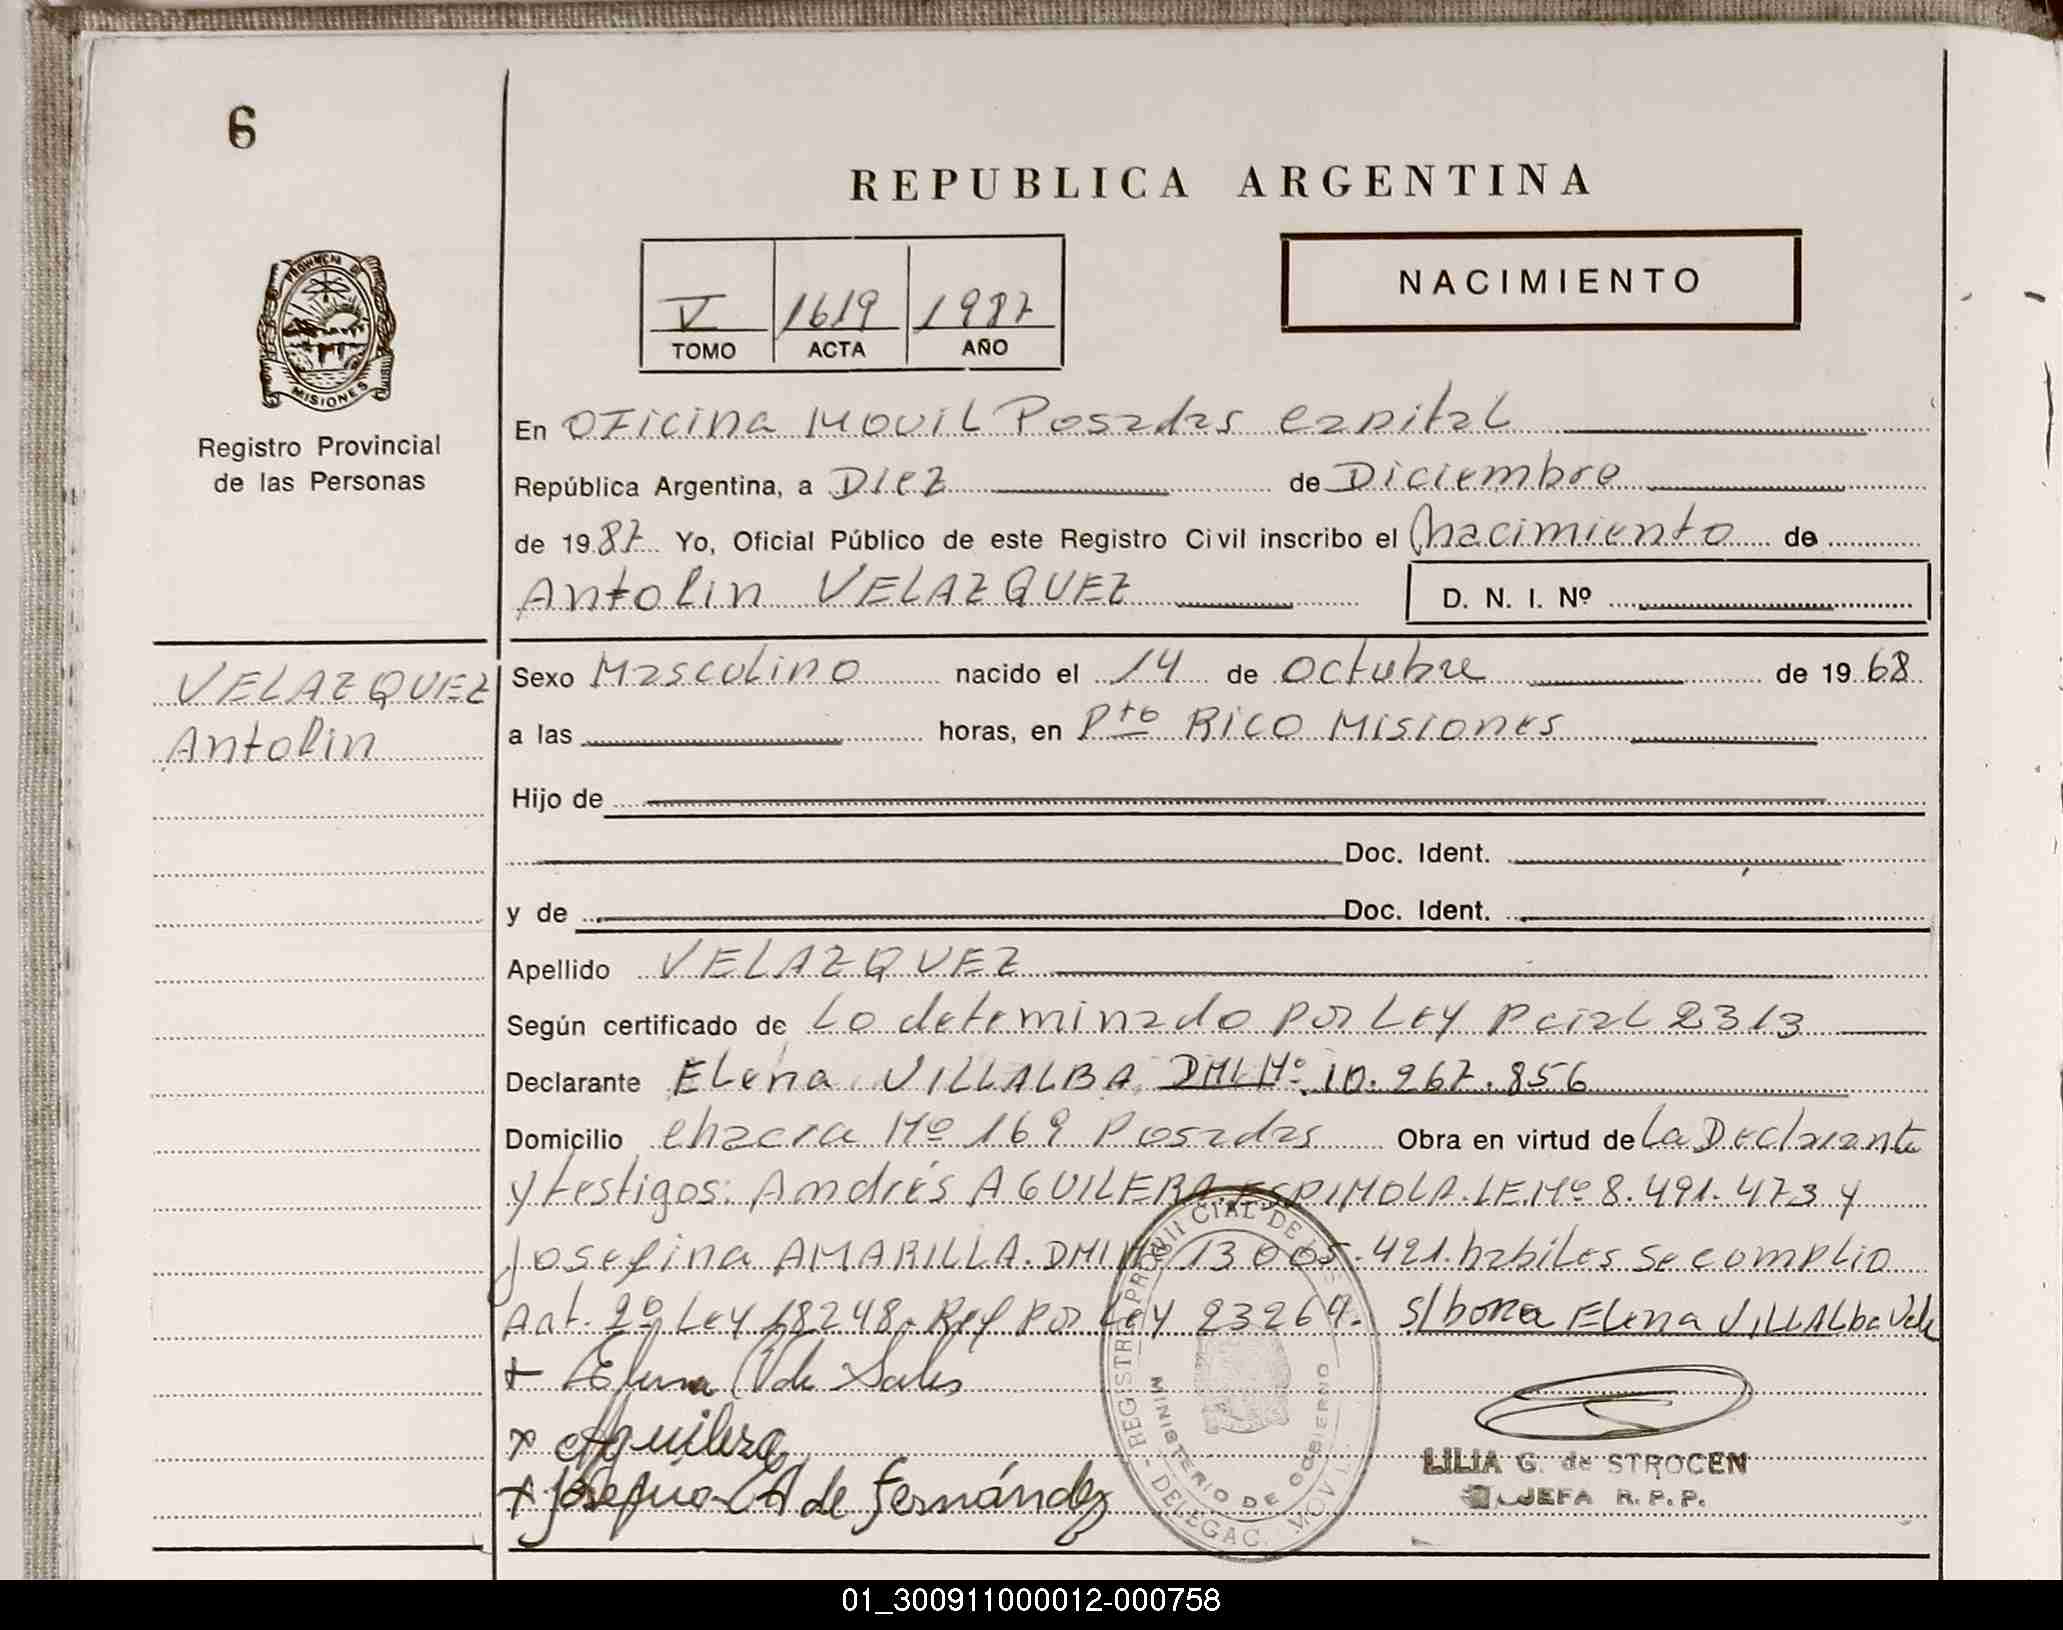 6
REPUBLICA ARGENTINA
NACIMIENTO
V 1619 1987
TOMO ACTA AÑO
PROVINCIA DE
MISIONES
Registro Provincial
de las Personas
En Oficina Movil Posadas Capital
República Argentina, a Diez de Diciembre
de 1987 Yo, Oficial Público de este Registro Civil inscribo el Nacimiento de
Antolin VELAZQUEZ D. N. I. Nº
VELAZQUEZ
Antolin
Sexo Masculino nacido el 14 de Octubre de 1968
a las horas, en Pto Rico Misiones
Hijo de
Doc. Ident.
y de Doc. Ident.
Apellido VELAZQUEZ
Según certificado de Lo determinado por Ley Pcial 2313
Declarante Elena VILLALBA DNI Nº 10.267.856
Domicilio Chacra Nº 169 Posadas Obra en virtud de La Declarante
y testigos: Andrés AGUILERA ESPINOLA. LE.Nº 8.491.473 y
Josefina AMARILLA. DNI Nº 13005.421. habiles se complio
Art. 2º Ley 18248. Ref por Ley 23264. S/borra Elena VILLALba Vale
+ Elena V de Sales
x Aguilera
+ Josefina A de Fernández
REGISTRO PROVINCIAL DE LAS
MINISTERIO DE GOBIERNO
DELEGAC. MOVIL
LILIA G. de STROCEN
JEFA R.P.P.
01_300911000012-000758